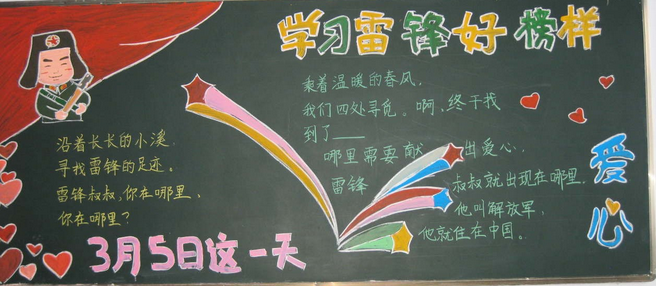 学习雷锋好榜样
沿着长长的小溪,
寻找雷锋的足迹。
雷锋叔叔,你在哪里,
你在哪里?
3月5日这一天
乘着温暖的春风,
我们四处寻觅。啊,终于找
到了——
哪里需要献出爱心,
雷锋叔叔就出现在哪里。
他叫解放军,
他就住在中国。
爱心